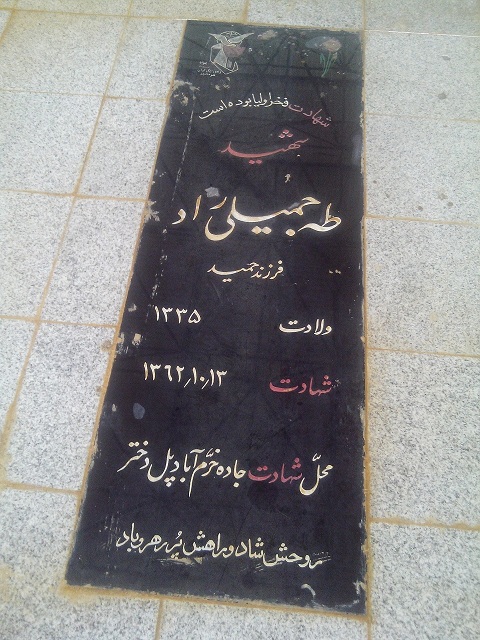 شهادت فخر اولیا بوده است
شهید
طه جمیلی راد
فرزند حمید
ولادت ۱۳۳۵
شهادت ۱۳۶۲٫۱۰٫۱۳
محلّ شهادت جاده خرّم آباد پل دختر
روحش شاد و راهش پر رهرو باد